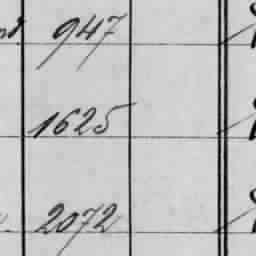 947
1625
2072